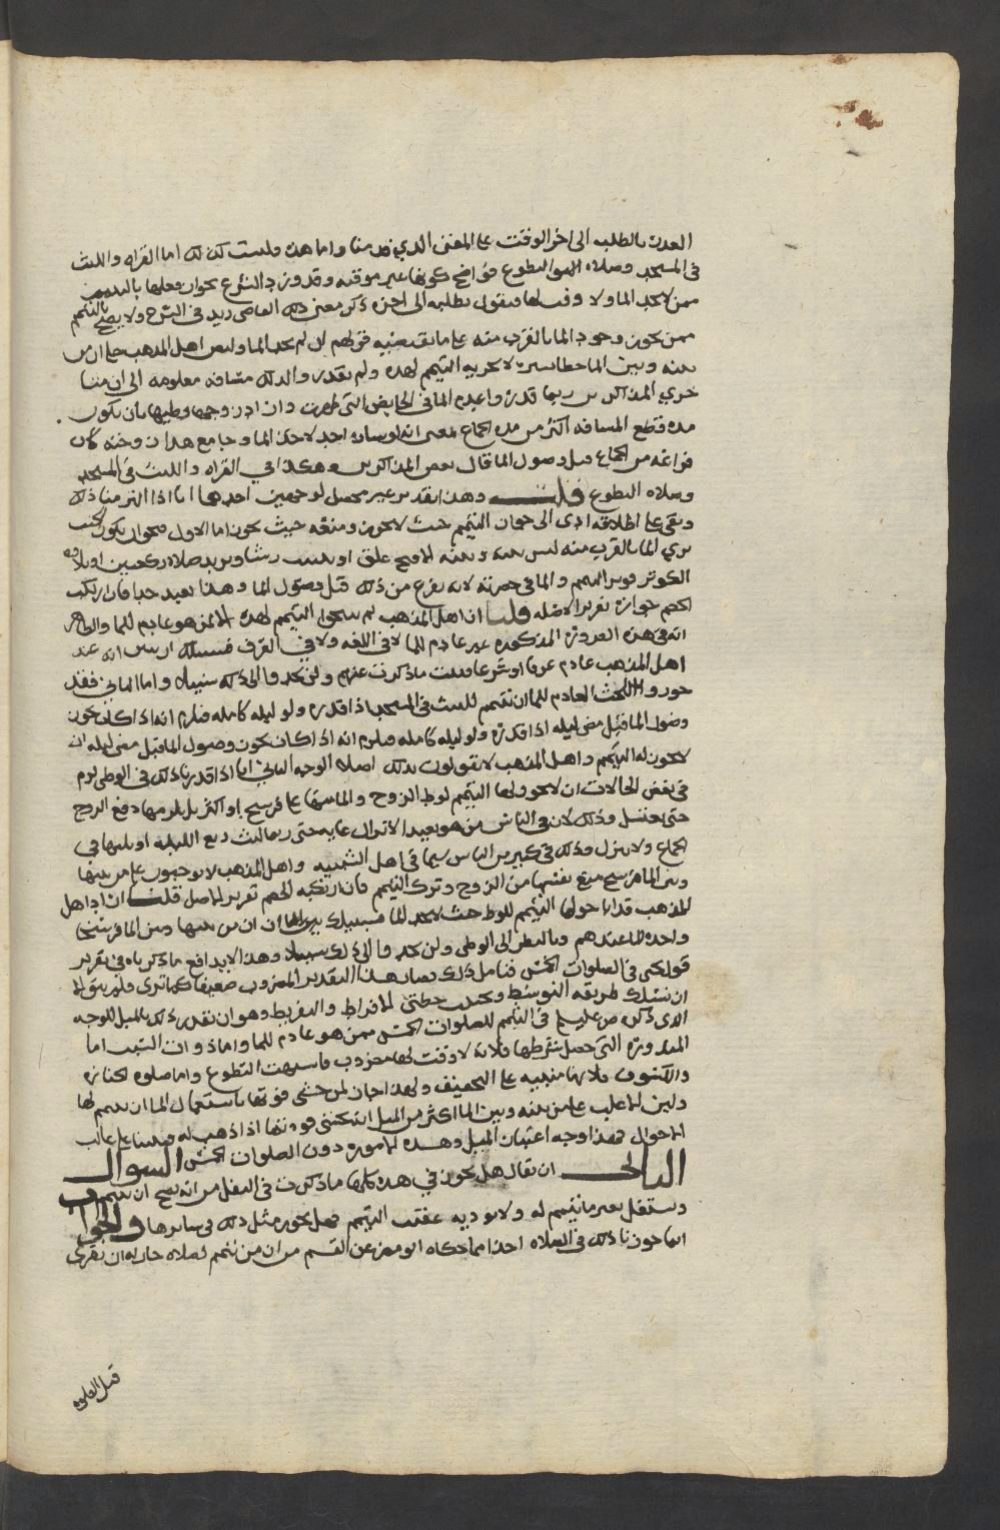 العدن بالطلب الى اخر الوقت على المعنى الذي قدمنا واما هذه وليست كذلك اما القراه واللبث
في المسجد وصلاه التطوع فواضح كونها غير موقته وقد ورد الشرع بجواز فعلها بالتيمم
ممن لا يجد الما ولا وقت لها فيقول بطلبه الى اخره ذكر معنى ذلك القاضي زيد في الشرح ولا يصح التيمم
ممن يكون وجود الما بالقرب منه على ما تقتضيه قولهم ان لم يجد الما وليس اهل المذهب على ان من
بينه وبين الما خطا يسيره لا يجزيه التيمم لهذه ولم يقدروا لذلك مسافه معلومه الى ان
المذاكرين ربما قدره واعدم الما في الحايض التي طهرت واراد زوجها وطيها بان يكون
مده قطع المسافه اكثر من مده الجماع بمعنى انه لو سار احد لاخذ الما وجامع هذا زوجته كان
فراغه من الجماع قبل وصول الما قال بعض المذاكرين وهكذا في القراه واللبث في المسجد
وصلاه التطوع قلت وهذا تقدير غير محصل لوجهين احدهما انا اذا التزمنا ذلك
وبقي على اطلاقه ادى الى جواز التيمم حيث لا يجوز ومنعه حيث يجوز اما الاول فبجواز يكون الجنب
يرى الما بالقرب منه ليس بينه وبينه الا وضع علق او رشا ويريد صلاه ركعتين او تلاوه
الكوثر فيريد التيمم والما في حضرته لانه يفرغ من ذلك قبل وصول الما وهذا بعيد جدا فان ارتكب
الخصم جوازه تقريرا لاصله قلنا ان اهل المذهب لم يبيحوا التيمم لهذه الا لمن هو عادم للما والظاهر
انه في هذه الصوره المذكوره غير عادم للما لا في اللغه ولا في العرف فسبيلك ان تبين انه عند
اهل المذهب عادم عرفا او شرعا فيثبت ما ذكرت عنهم ولن تجد الى ذلك سبيلا واما الثاني فقد
جوزوا للجنب العادم للما ان يتيمم للبث في المسجد اذا قدره ولو ليله كامله فيلزم انه اذا كان يجوز
وصول الما قبل مضي ليله اذا قدره ولو ليله كامله فيلزم انه اذا كان يجوز وصول الما قبل مضي ليله ان
لا يجوز له التيمم واهل المذهب لا يقولون بذلك اصلا الوجه الثاني انا اذا قدرنا ذلك في الوطي لزم
في بعض الحالات ان لا يجوز لها التيمم لوطي الزوج والما منها على فرسخ او اكثر بل يلزمها دفع الزوج
حتى تغتسل وذلك لان في الناس من هو بعيد الانزال غايه حتى ربما لبث ربع الليله او ثلثها في
الجماع ولا ينزل وذلك في كثير من الناس سيما في اهل الشبيبه واهل المذهب لا يوجبون على من بينها
وبين الما فرسخ منع نفسها من الزوج وترك التيمم فان ارتكبه الخصم تقريرا لاصل قلنا ان اهل
المذهب قد اباحوا لها التيمم للوطي حيث لا يجد الما فسبيلك ان تبين ان من بينها وبين الما فرسخا
واحده للما عندهم وبالنظر الى الوطي ولن تجد الى ذلك سبيلا وهذا لا يدافع ما ذكرناه في تقرير
قول يحيى في الصلوات الخمس فتامل ذلك فصار هذا التقدير المضروب ضعيفا كما ترى فلم يبق الا
ان نسلك طريقه التوسط وتجنب خطتي الافراط والتفريط وهو ان نقدر ذلك بالميل للوجه
الذي ذكره ص عليلم في التيمم للصلوات الخمس ممن هو عادم للما واما ذوات السبب اما
المنذوره التي حصل شرطها فلانه لا وقت لها مضروب فاشبهت التطوع واما صلوه الجنازه
والكسوف فلانها مبنيه على التخفيف ولهذا اجاز لمن خشي فوتها باستعمال الما ان يتيمم لها
وليس الاغلب على من بينه وبين الما اكثر من الميل انه يخشى فوتها اذا ذهب له وبنينا على غالب
الاحوال فهذا وجه اعتبار الميل وهذه الامور دون الصلوات الخمس السوال
الثاني ان يقال هل يجوز في هذه كلها ما ذكرت في النفل من انه يصح ان يتيمم
ويستقبل بغير ما تيمم له ولا يوديه عقيب التيمم فهل يجوز مثل ذلك في سايرها والجواب
انما جوزنا ذلك في الصلاه اخذا مما حكاه ابو مضر عن القسم من ان من تيمم لصلاه جاز له ان يقرى
قبل الصلوه